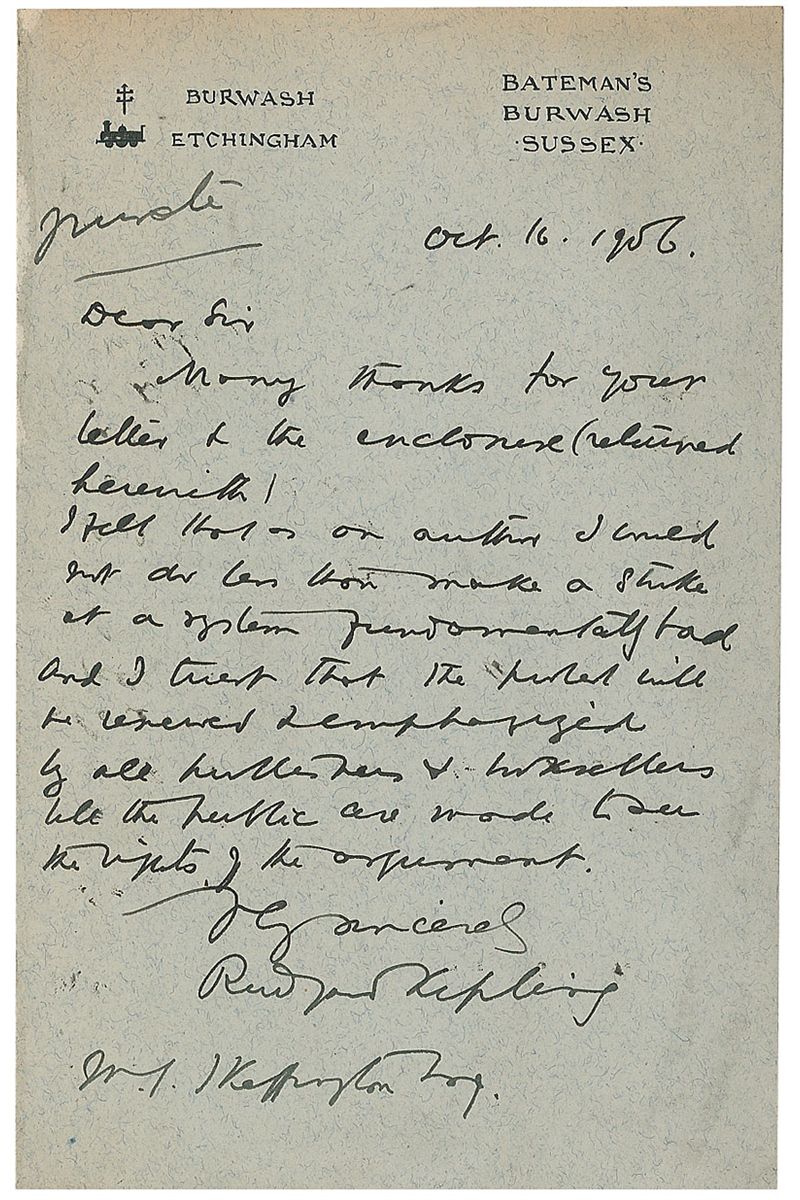 BURWASH
ETCHINGHAM
BATEMAN'S
BURWASH
·SUSSEX·
private
Oct. 16. 1906.
Dear Sir
Many thanks for your
letter & the enclosure (returned
herewith)
I felt that as an author I could
not do less than make a strike
at a system fundamentally bad
and I trust that the protest will
be renewed & emphasized
by all publishers & booksellers
till the public are made to see
the rights of the argument.
Vy sincerely
Rudyard Kipling
W. S. Skeffington Esq.